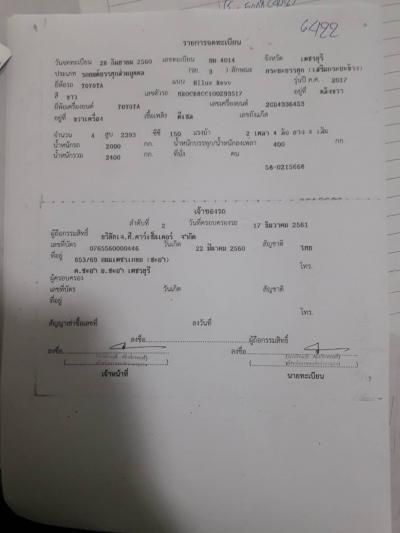 6422
รายการจดทะเบียน
วันจดทะเบียน 28 กันยายน 2560 เลขทะเบียน 4014 จังหวัด เพชรบุรี
ประเภท รถยนต์บรรทุกส่วนบุคคล (รย. 3 ) ลักษณะ กระบะบรรทุก
ยี่ห้อรถ TOYOTA แบบ Hilux Revo รุ่นปี ค.ศ. 2017
สี ขาว เลขตัวรถ อยู่ที่
ยี่ห้อเครื่องยนต์ TOYOTA เลขเครื่องยนต์ 2GD4336453
อยู่ที่ ขวาเครื่อง เชื้อเพลิง ดีเซล เลขถังแก๊ส
จำนวน 4 สูบ 2393 ซีซี 150 แรงม้า 2 เพลา 4 ล้อ ยาง 4 เส้น
น้ำหนักรถ 2000 กก. น้ำหนักบรรทุก/น้ำหนักลงเพลา 400 กก.
น้ำหนักรวม 2400 กก. ที่นั่ง คน
58-0215668
เจ้าของรถ
ลำดับที่ 2 วันที่ครอบครองรถ 17 ธันวาคม 2561
ผู้ถือกรรมสิทธิ์ จำกัด
เลขที่บัตร 0765560000446 วันเกิด 22 มีนาคม 2560 สัญชาติ ไทย
ที่อยู่ 653/69 ถนนเพชรเกษม (ชะอำ) โทร.
ต.ชะอำ อ.ชะอำ เพชรบุรี
ผู้ครอบครอง
เลขที่บัตร วันเกิด สัญชาติ
ที่อยู่
โทร.
สัญญาเช่าซื้อเลขที่ ลงวันที่
ลงชื่อ ผู้ถือกรรมสิทธิ์
ลงชื่อ ลงชื่อ
เจ้าหน้าที่ นายทะเบียน